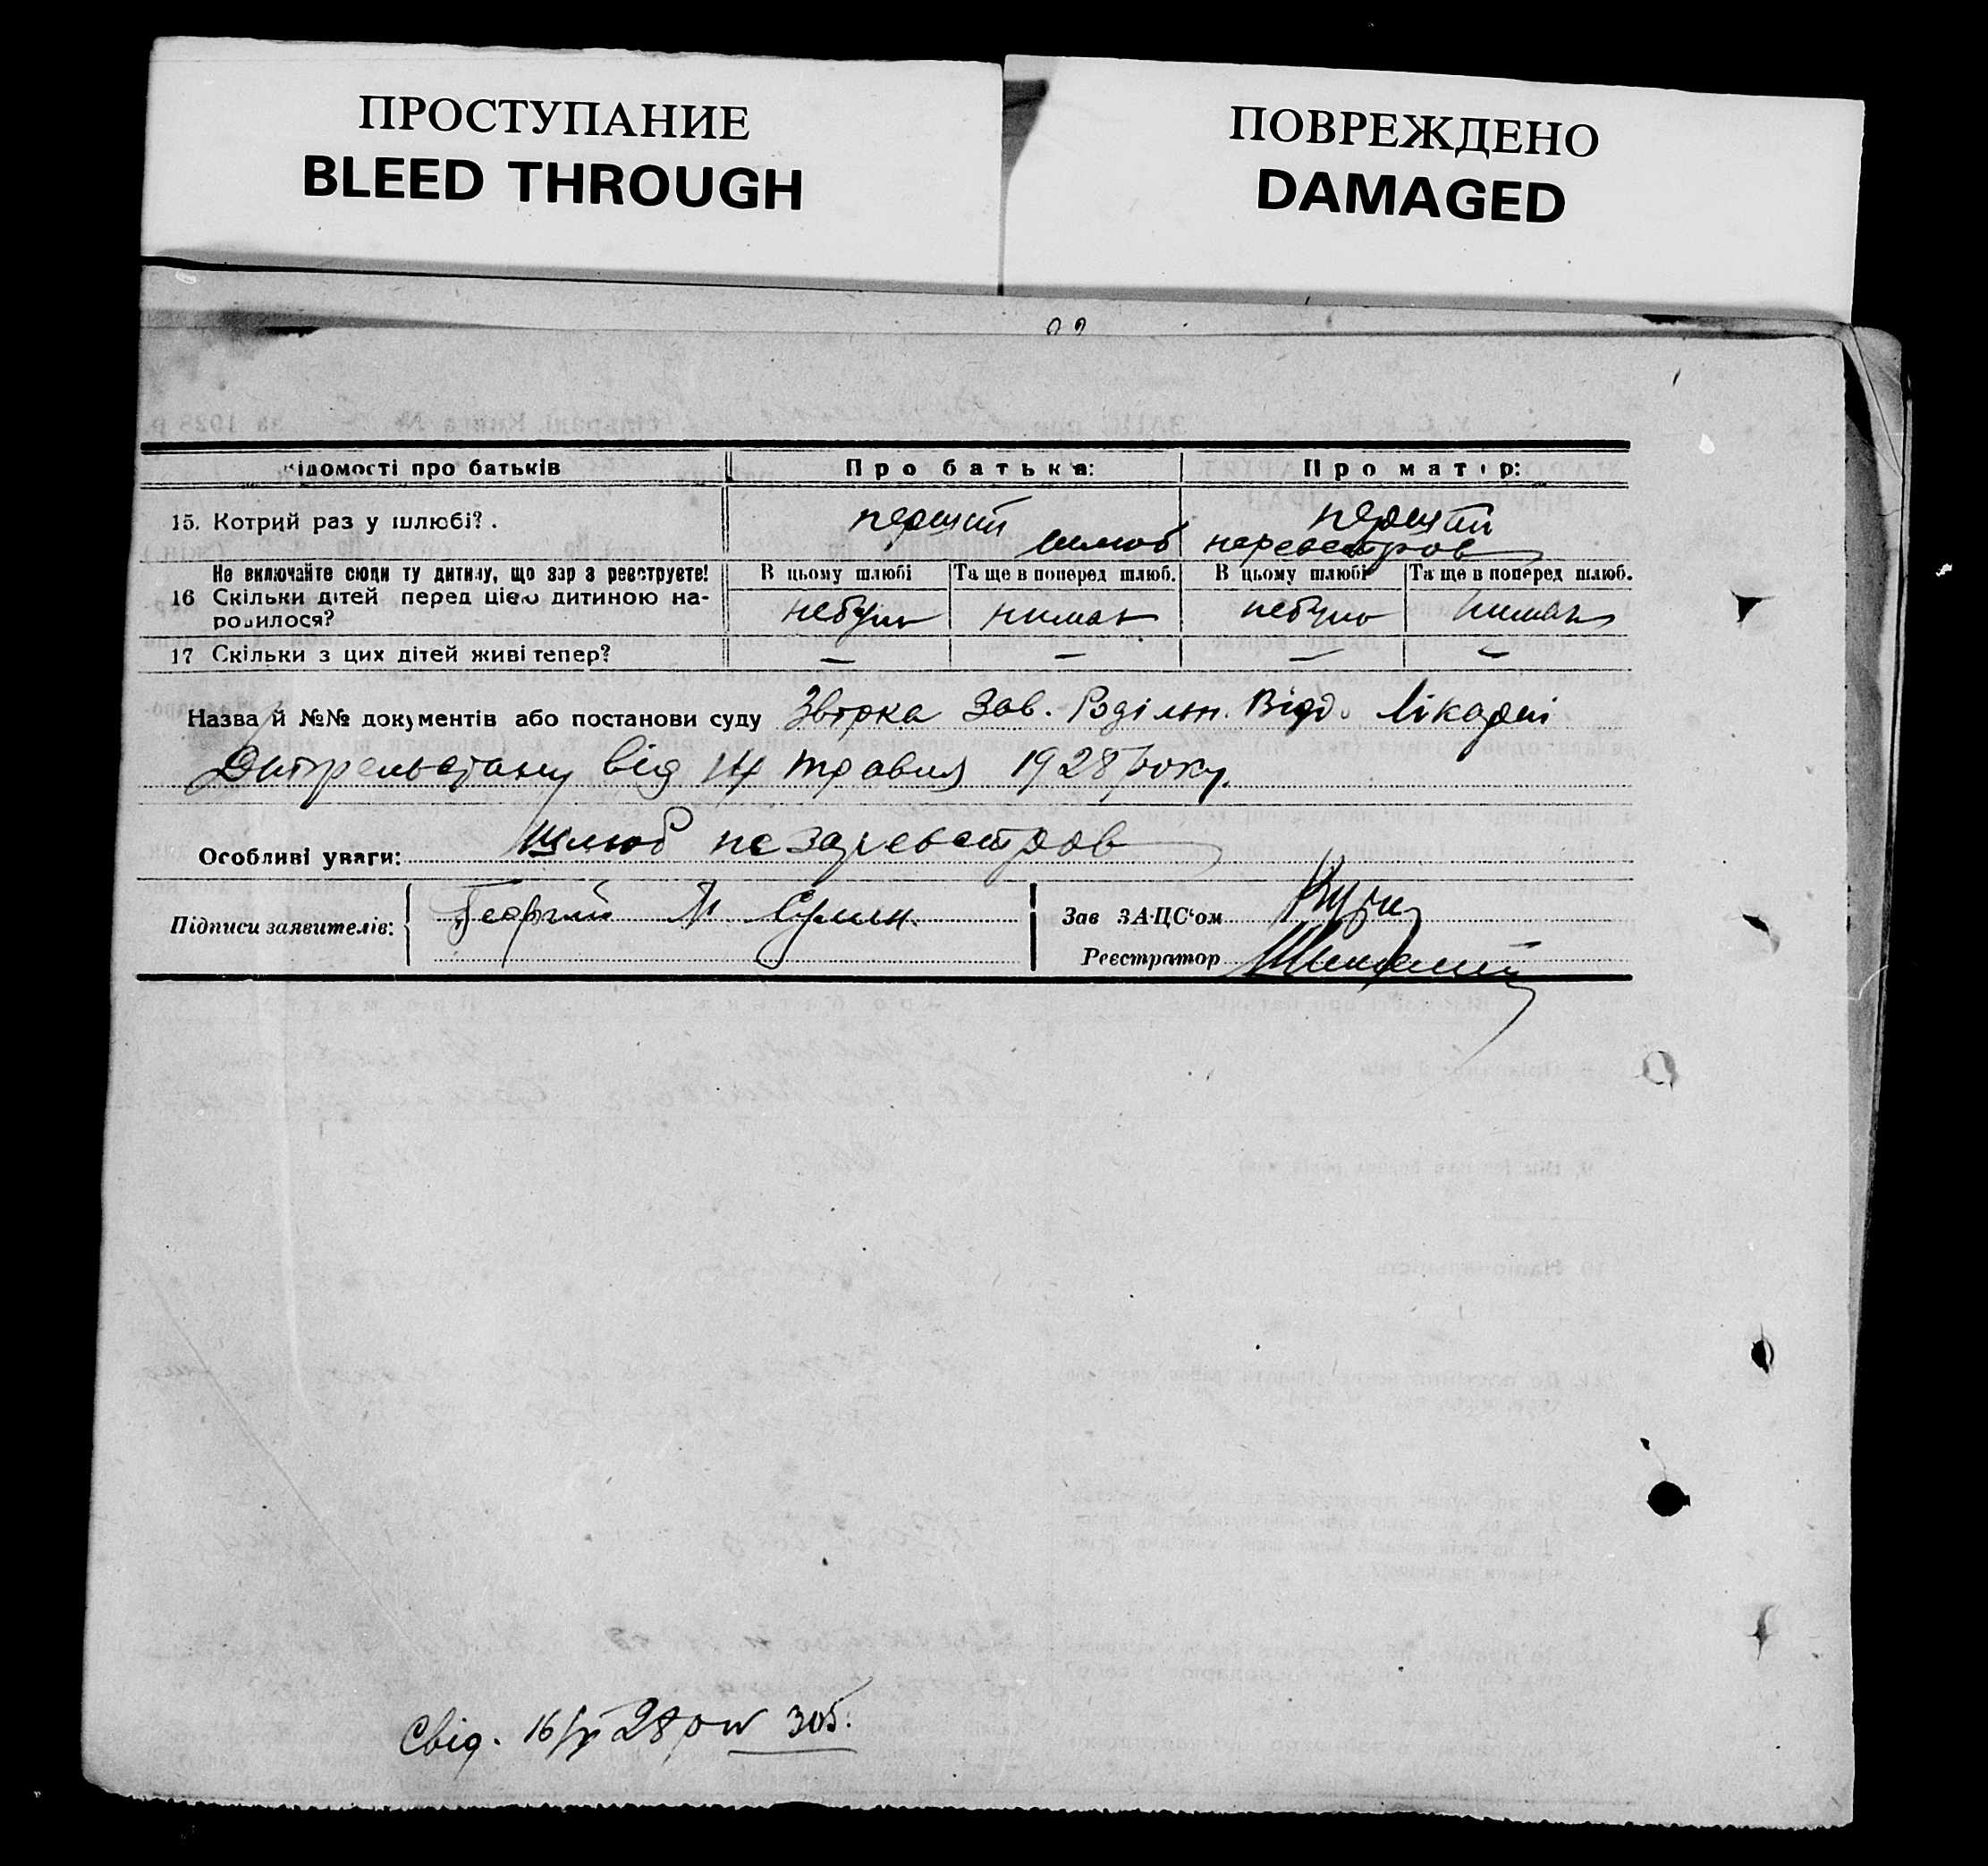 ПРОСТУПАНИЕ
BLEED THROUGH
ПОВРЕЖДЕНО
DAMAGED
відомості про батьків
Про батька:
Про матір:
15. Котрий раз у шлюбі? .
перший
шлюб
перший
Не включайте сюди ту дитину, що зар з реєструєте!
16 Скільки дітей перед цією дитиною на-
родилося?
В цьому шлюбі
Та ще в поперед шлюб.
В цьому шлюбі
Та ще в поперед шлюб.
небуло
нимає
небуло
нимає
17 Скільки з цих дітей живі тепер?
— — — —
Назва й №№ документів або постанови суду Звірка Зав. Відд. Лікарні
від 14 травня 1928 року.
Особливі уваги: Шлюб незареєстров
Підписи заявителів: Георгий
Зав ЗАЦС'ом
Реєстратор
Свід. 16/V 28 р № 305.